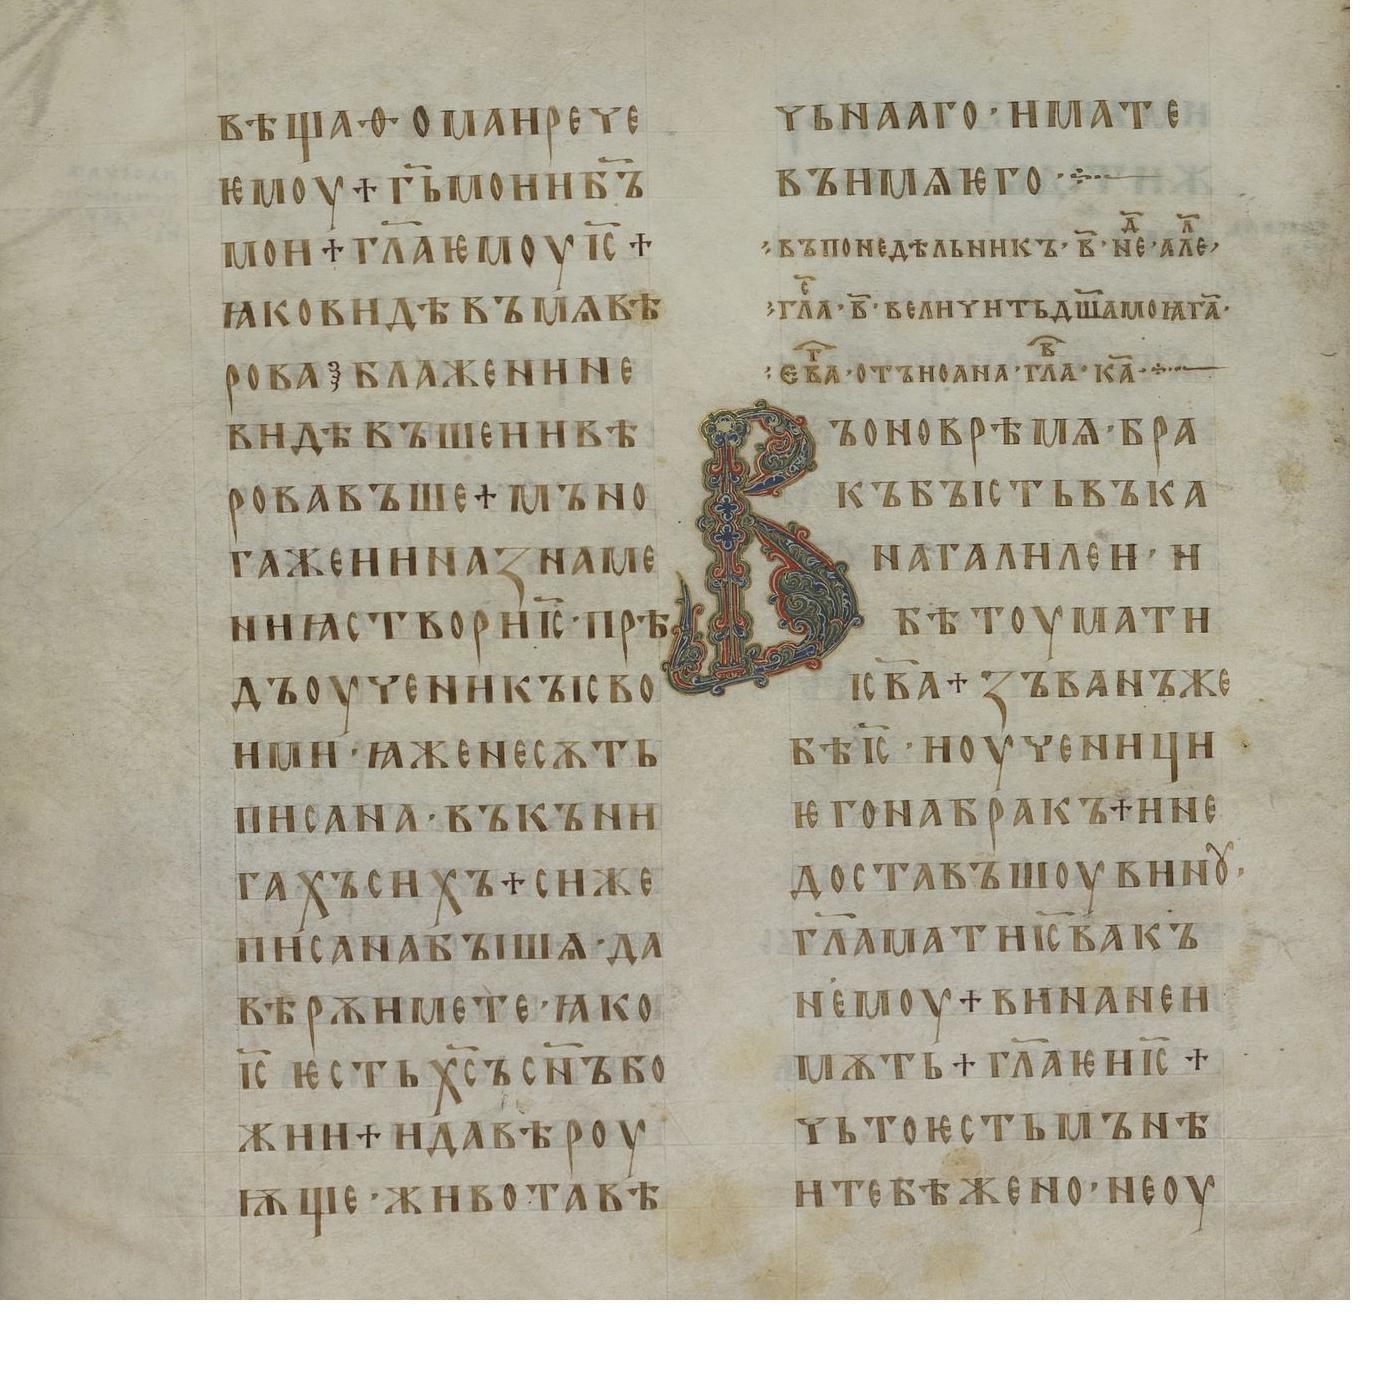 вѣщаѳомаирече
ѥмоу+гь҃мои иб҃ъ
мои+гл҃аѥмоуіс҃+
ꙗковидѣвъмѧвѣ
роваꙁ блажении не
видѣвъшеиивѣ
ровавъше+мъно
гажеииназнаме
ниꙗстворииіс҃·прѣ
дъоученикъісво
ими·ꙗженесѫть
писана·въкъни
гахъсихъ+сиже
писанабꙑшѧ·да
вѣрѫимете·ꙗко
іс҃ ѥстьхс҃ъсн҃ъбо
жии+идавѣроу
ѭще·животавѣ
чьнааго·имате
въимѧѥго·
въпонедѣльникъ·в҃·не·але
гла·в҃·величитьдш҃амоꙗга҃·
ев҃а·отъиоана·гла·ка҃·
Въоноврѣмѧ·бра
къбꙑстьвъка
нагалилеи·и
бѣтоумати
ісв҃а+зъванъже
бѣіс҃·иоученици
ѥгонабракъ+ине
доставъшоувинꙋ·
гл҃аматиіс҃вакъ
немоу+винанеи
мѫть+гл҃аѥиіс҃+
чьтоѥстьмънѣ
итебѣжено·неоу